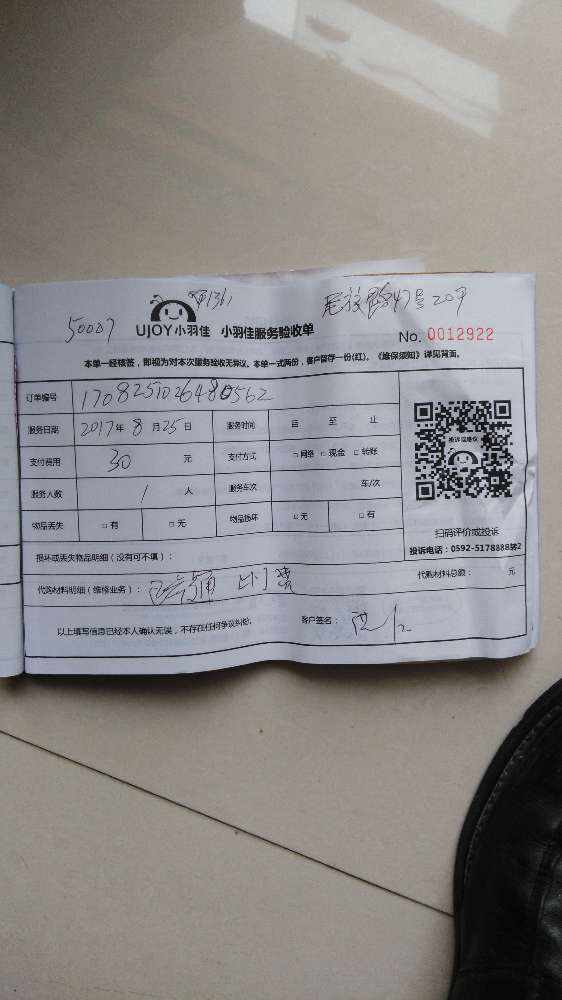 50007
UJOY小羽佳 小羽佳服务验收单
No. 0012922
本单一经核签，即视为对本次服务验收无异议。本单一式两份，客户留存一份(红)。《维保须知》详见背面。
订单编号
服务日期 2017年 8 月 25 日 服务时间 自 至 止
支付费用 30 元 支付方式 □网络 □现金 □转账
服务人数 1 人 服务车次 车/次
物品丢失 □有 □无 物品损坏 □无 □有
投诉或建议
扫码评价或投诉
投诉电话：0592-5178888转2
损坏或丢失物品明细（没有可不填）：
代购材料明细（维修业务）： 代购材料总额： 元
以上填写信息已经本人确认无误，不存在任何争议纠纷。 客户签名：